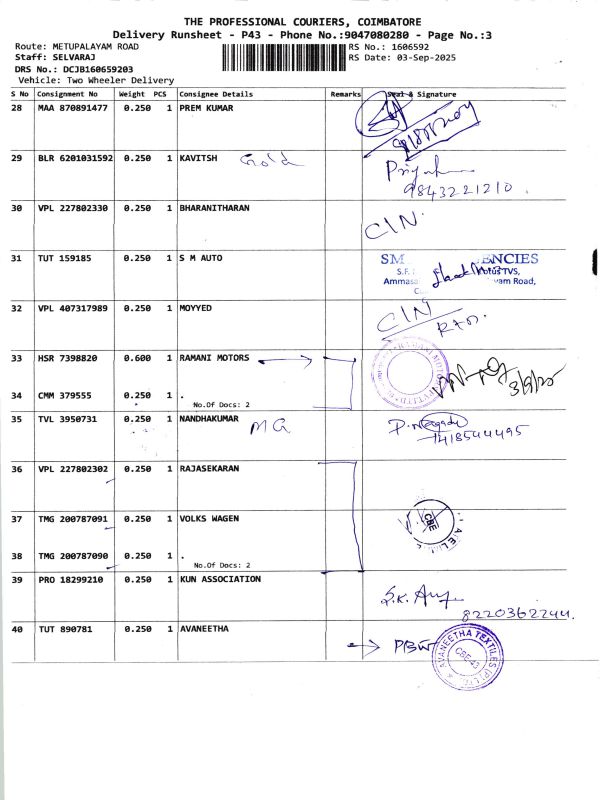 THE PROFESSIONAL COURIERS, COIMBATORE
Delivery Runsheet - P43 - Phone No.:9047080280 - Page No.:3
Route: METUPALAYAM ROAD RS No.: 1606592
Staff: SELVARAJ RS Date: 03-Sep-2025
DRS No.: DCJB160659203
Vehicle: Two Wheeler Delivery
S No Consignment No Weight PCS Consignee Details Remarks Seal & Signature
28 MAA 870891477 0.250 1 PREM KUMAR
29 BLR 6201031592 0.250 1 KAVITSH Gold
9843221210.
30 VPL 227802330 0.250 1 BHARANITHARAN
CIN.
31 TUT 159185 0.250 1 S M AUTO
SM ENCIES
S.F. Motus TVS,
Ammasa vam Road,
32 VPL 407317989 0.250 1 MOYYED
CIN
33 HSR 7398820 0.600 1 RAMANI MOTORS
3/9/25
34 CMM 379555 0.250 1 .
No.Of Docs: 2
35 TVL 3950731 0.250 1 NANDHAKUMAR MG
7418544495
36 VPL 227802302 0.250 1 RAJASEKARAN
37 TMG 200787091 0.250 1 VOLKS WAGEN
CBE
38 TMG 200787090 0.250 1 .
No.Of Docs: 2
39 PRO 18299210 0.250 1 KUN ASSOCIATION
8220362244.
40 TUT 890781 0.250 1 AVANEETHA
AVANEETHA TEXTILES (P) LTD
CBE-43